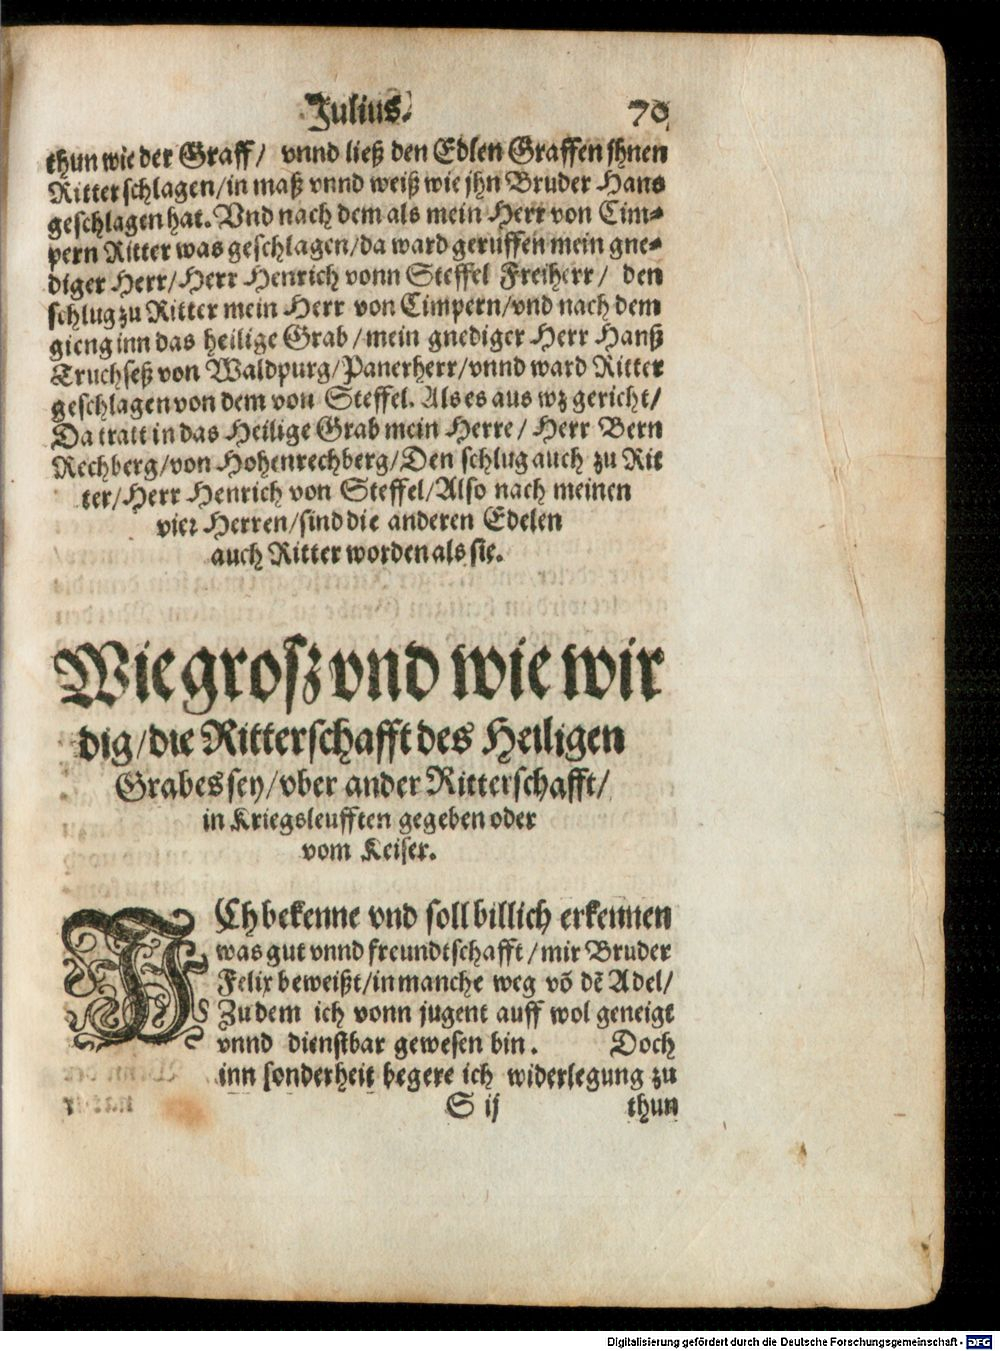 Julius.
70
thun wie der Graff/ vnnd ließ den Edlen Graffen jhnen
Ritter schlagen/in maß vnnd weiß wie jhn Bruder Hans
geschlagen hat. Vnd nach dem als mein Herr von Cim⸗
pern Ritter was geschlagen/da ward geruffen mein gne⸗
diger Herr/Herr Henrich vonn Steffel Freiherr/ den
schlug zu Ritter mein Herr von Cimpern/vnd nach dem
gieng inn das heilige Grab/mein gnediger Herr Hanß
Truchseß von Waldpurg/Panerherr/vnnd ward Ritter
geschlagen von dem von Steffel. Als es aus wz gericht/
Da tratt in das Heilige Grab mein Herre/ Herr Bern
Rechberg/von Hohenrechberg/Den schlug auch zu Rit
ter/Herr Henrich von Steffel/Also nach meinen
vier Herren/sind die anderen Edelen
auch Ritter worden als sie.
Wie grosz vnd wie wir
dig/die Ritterschafft des Heiligen
Grabes sey/vber ander Ritterschafft/
in Kriegsleufften gegeben oder
vom Keiser.
ICh bekenne vnd soll billich erkennen
was gut vnnd freundtschafft/mir Bruder
Felix beweißt/in manche weg võ dẽ Adel/
Zu dem ich vonn jugent auff wol geneigt
vnnd dienstbar gewesen bin. Doch
inn sonderheit begere ich widerlegung zu
S ij thun
Digitalisierung gefördert durch die Deutsche Forschungsgemeinschaft - DFG